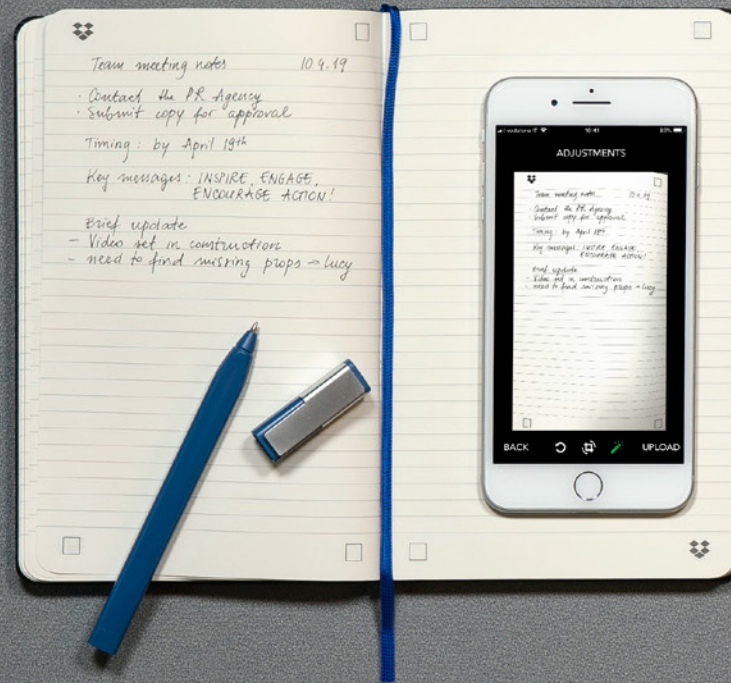 Team meeting notes 10.4.19
· Contact the PR Agency
· Submit copy for approval
Timing: by April 19th
Key messages: INSPIRE, ENGAGE,
ENCOURAGE ACTION!
Brief update
- Video set in construction
- need to find missing props → Lucy
vodafone IT 10:41 83%
ADJUSTMENTS
Team meeting notes 10.4.19
Contact the PR Agency
Submit copy for approval
Timing: by April 19th
Key messages: INSPIRE, ENGAGE,
ENCOURAGE ACTION!
Brief update
- Video set in construction
- need to find missing props → Lucy
BACK UPLOAD